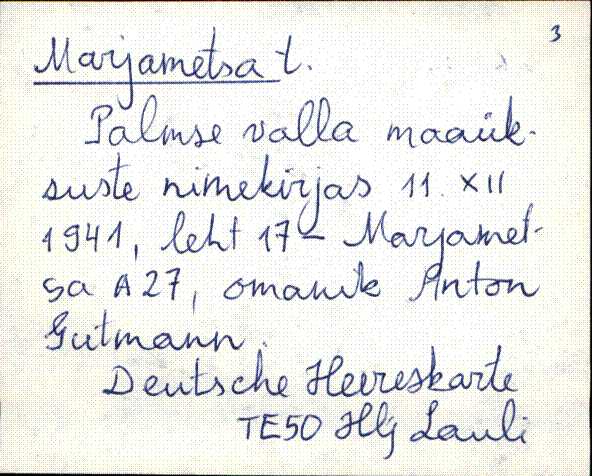 3
Marjametsa t.
Palmse valla maaük-
suste nimekirjas 11. XII
1941, leht 17 – Marjamet-
sa A 27, omanik Anton
Gutmann.
Deutsche Heereskarte
TE50 Hlj Lauli